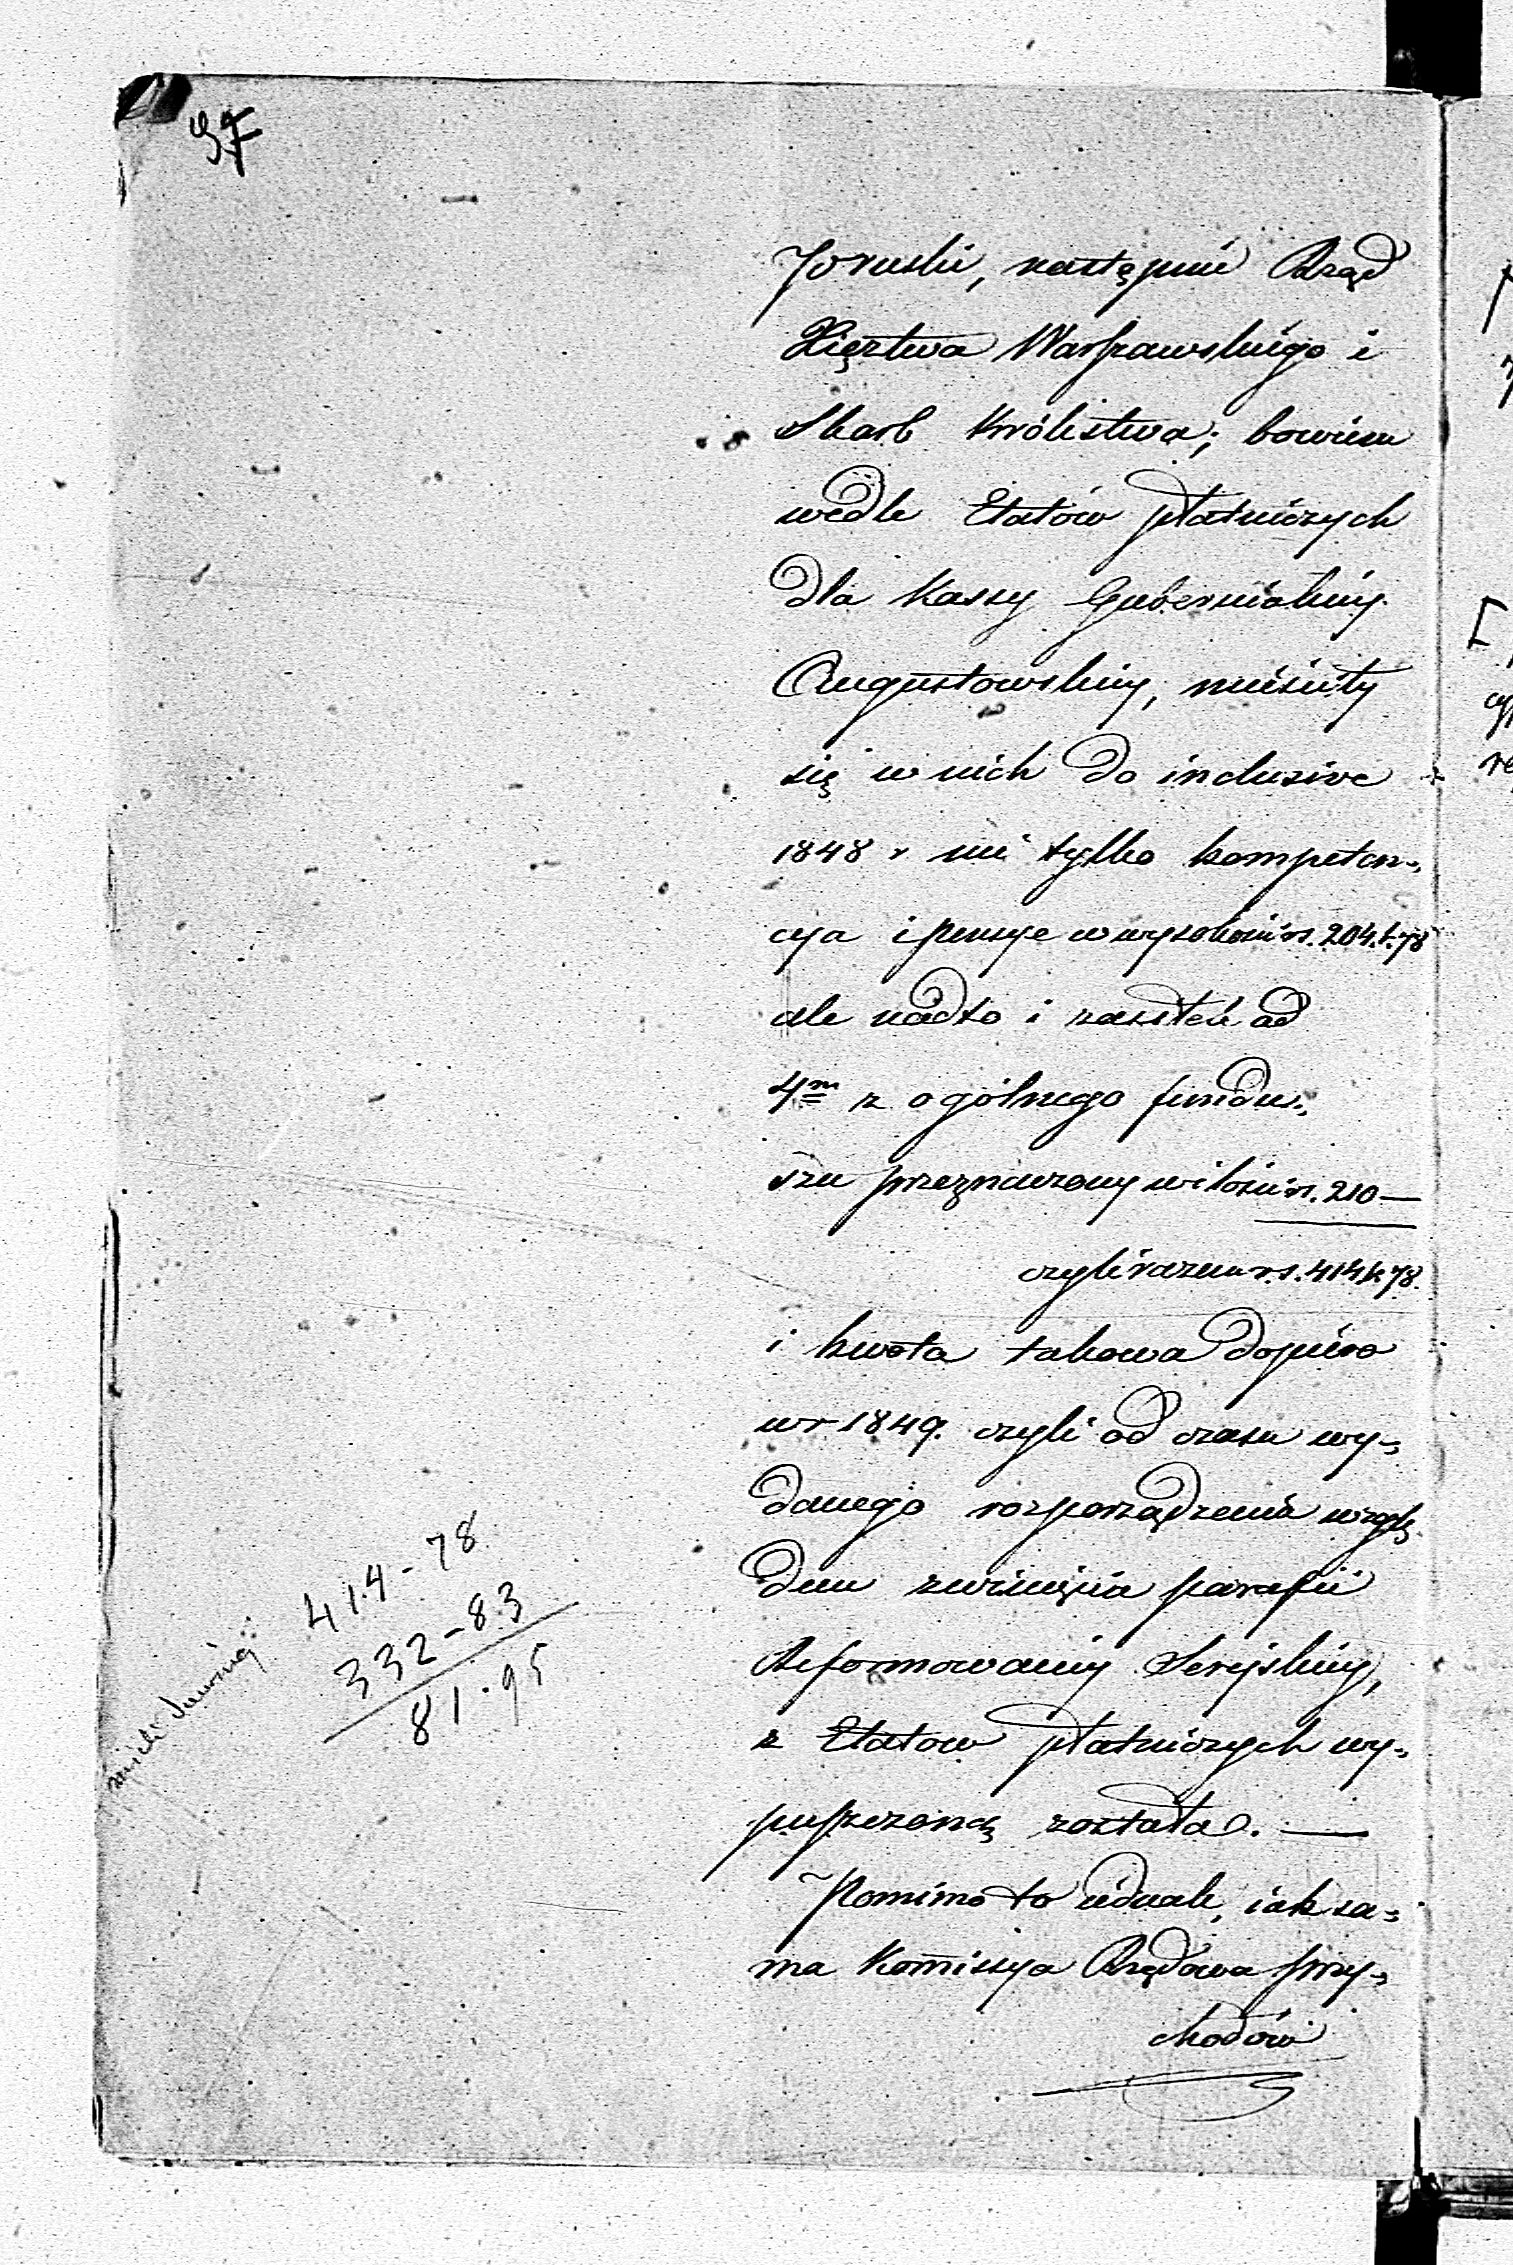 97
Pruski, następnie Rząd
Xięztwa Warszawskiego i
Skarb Królestwa; bowiem
wedle Etatów płatniczych
dla Kassy Gubernialnéy
Augustowskiey, mieściły
się w nich do inclusive
1848 r nie tylko kompeten-
cya i pensye w wysokości rs. 204. k. 78
ale nadto i zasiłek od
4m z ogólnego fundu-
szu przeznaczony w ilości rs. 210 —
czyli razem rs. 414 k 78.
i kwota takowa dopiéro
w r 1849. czyli od czasu wy-
danego rozporządzenia wzglę-
dem zwinięcia parafii
Reformowaney Sereyskiey,
z Etatow płatniczych wy-
puszczoną została. —
Pomimo to iednak, iak sa-
ma Kommissya Rządowa Przy-
chodów
414 - 78
332 - 83
81 . 95